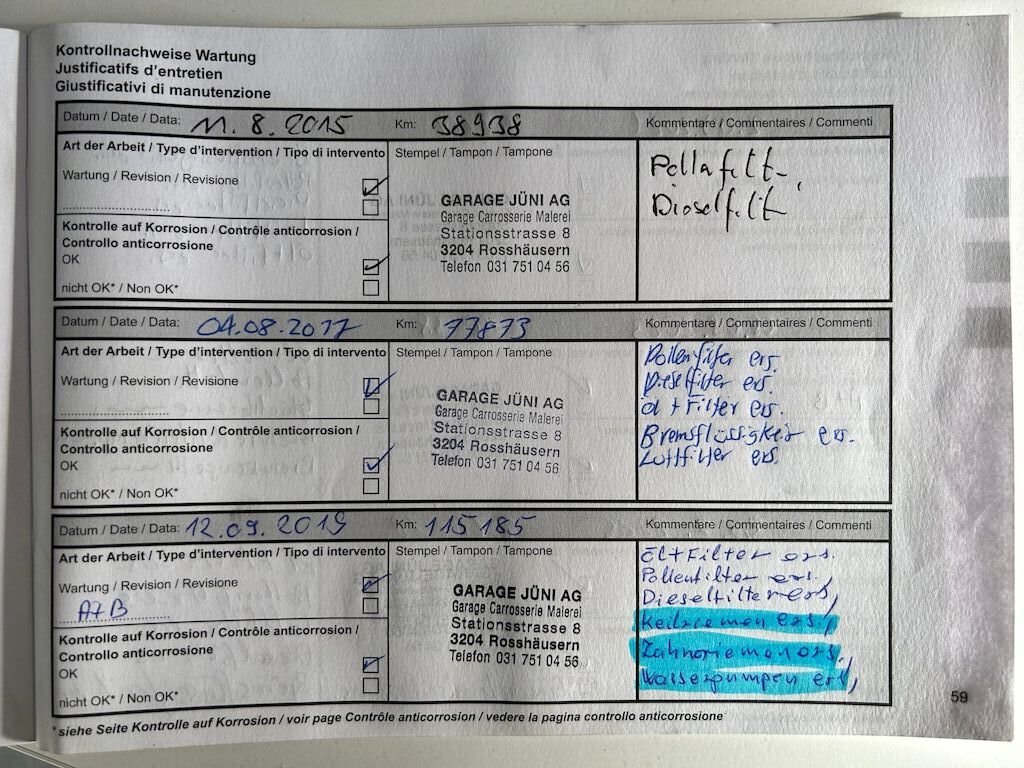 Kontrollnachweise Wartung
Justificatifs d'entretien
Giustificativi di manutenzione
Datum / Date / Data: 11. 8. 2015 Km: 38938 Kommentare / Commentaires / Commenti
Art der Arbeit / Type d'intervention / Tipo di intervento Stempel / Tampon / Tampone
Wartung / Revision / Revisione
Kontrolle auf Korrosion / Contrôle anticorrosion /
Controllo anticorrosione
OK
nicht OK* / Non OK*
GARAGE JÜNI AG
Garage Carrosserie Malerei
Stationsstrasse 8
3204 Rosshäusern
Telefon 031 751 04 56
Pollafilt
Dieselfilt
Datum / Date / Data: 04.08.2017 Km: 77873 Kommentare / Commentaires / Commenti
Art der Arbeit / Type d'intervention / Tipo di intervento Stempel / Tampon / Tampone
Wartung / Revision / Revisione
Kontrolle auf Korrosion / Contrôle anticorrosion /
Controllo anticorrosione
OK
nicht OK* / Non OK*
GARAGE JÜNI AG
Garage Carrosserie Malerei
Stationsstrasse 8
3204 Rosshäusern
Telefon 031 751 04 56
Pollenfilter ers.
Dieselfilter ers.
Öl + Filter ers.
Bremsflüssigkeit ers.
Luftfilter ers.
Datum / Date / Data: 12.09.2019 Km: 115185 Kommentare / Commentaires / Commenti
Art der Arbeit / Type d'intervention / Tipo di intervento Stempel / Tampon / Tampone
Wartung / Revision / Revisione
A+B
Kontrolle auf Korrosion / Contrôle anticorrosion /
Controllo anticorrosione
OK
nicht OK* / Non OK*
GARAGE JÜNI AG
Garage Carrosserie Malerei
Stationsstrasse 8
3204 Rosshäusern
Telefon 031 751 04 56
Öl+Filter ers.
Pollenfilter ers.,
Dieselfilter ers,
Keilriemen ers.,
Zahnriemen ers.,
Wasserpumpen ers,
*siehe Seite Kontrolle auf Korrosion / voir page Contrôle anticorrosion / vedere la pagina controllo anticorrosione
59